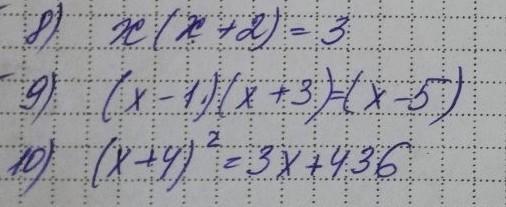 8) x(x+2)=3
9) (x-1)(x+3)=(x-5)
10) (x+4)² = 3x+436